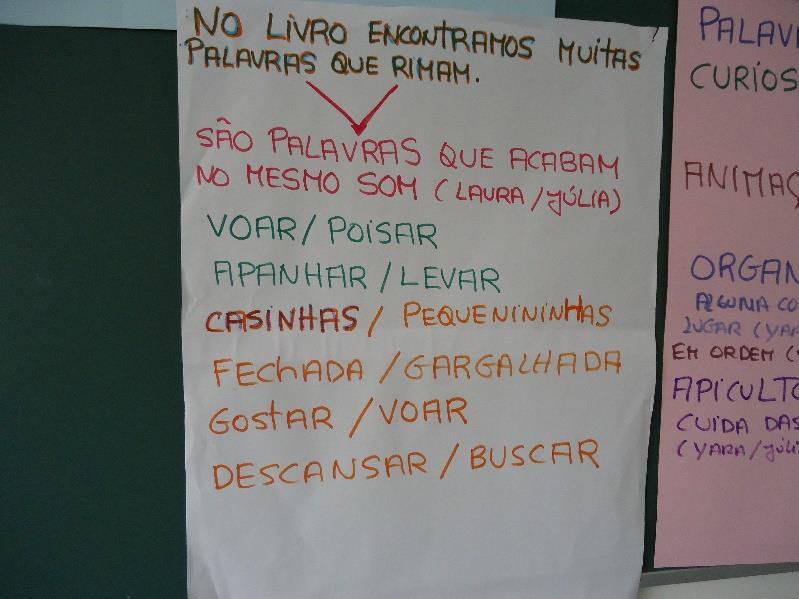 NO LIVRO ENCONTRAMOS MUITAS
PALAVRAS QUE RIMAM.
SÃO PALAVRAS QUE ACABAM
NO MESMO SOM (LAURA/JÚLIA)
VOAR/POISAR
APANHAR/LEVAR
CASINHAS/PEQUENININHAS
FECHADA/GARGALHADA
GOSTAR/VOAR
DESCANSAR/BUSCAR
CURIOS
ANIMAÇ
ORGAN
ALGUMA CO
LUGAR (YAR
EM ORDEM (
APICULTO
CUIDA DAS
(YARA/JÚLI